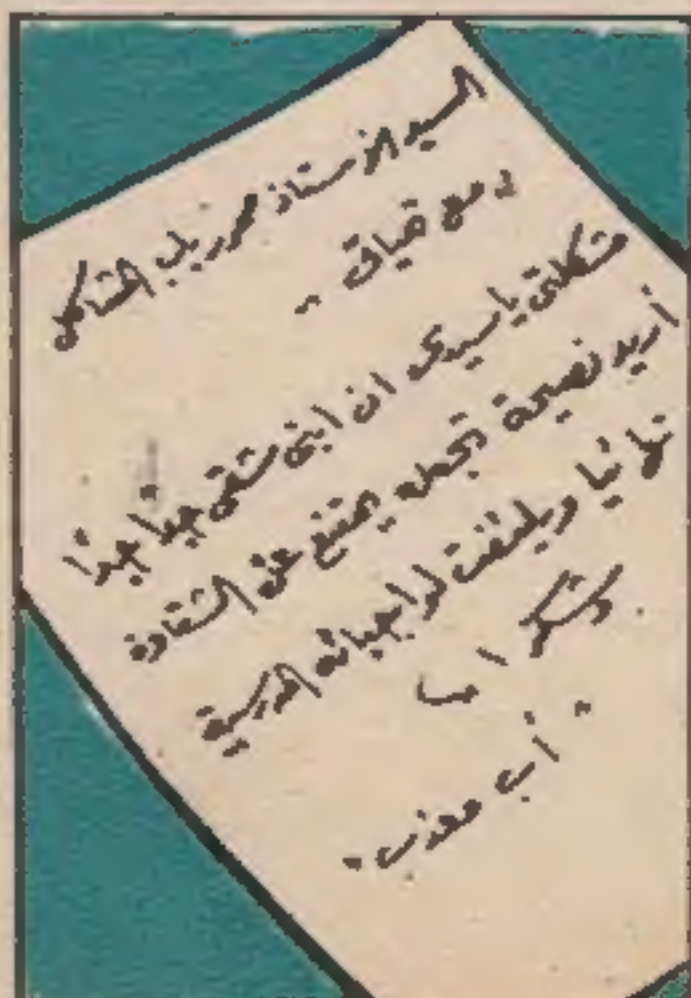 السيد الأستاذ محرر باب المشاكل
« مع تحياتى ..
مشكلتى يا سيدى ان ابنى شقى جدًا جدًا
أريد نصيحة تجعله يمتنع عن الشقاوة
نهائيا ويلتفت لواجباته المدرسية
وشكرا
" أب معذب "